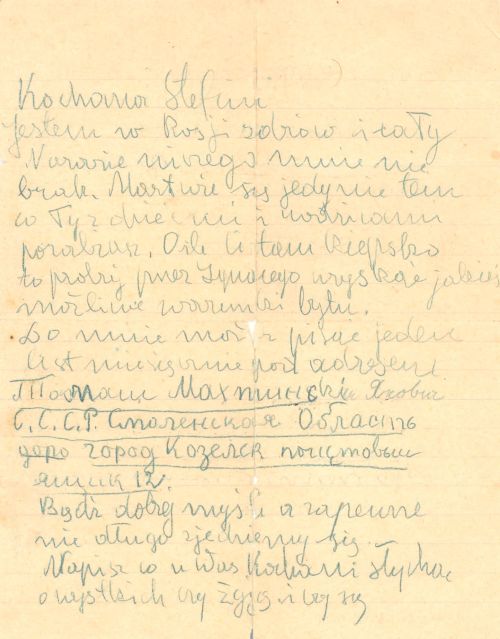 Kochana Stefciu
Jestem w Rosji zdrów i cały
Narazie niczego mnie nie
brak. Martwię się jedynie tem
co Ty z dziećmi i rodzicami
porabiasz. O ile Ci tam kiepsko
to próbuj przez Ignacego uzyskać jakieś
możliwe warunki bytu.
Do mnie możesz pisać jeden
list miesięcznie pod adresem
Томаш Махтинск Якович
С.С.С.Р. Смоленская Область
город Козельск почтовый
ящик 12.
Bądź dobrej myśli a zapewne
nie długo zjedniemy się.
Napisz co u Was Kochani słychać
o wszystkich czy żyją i czy są